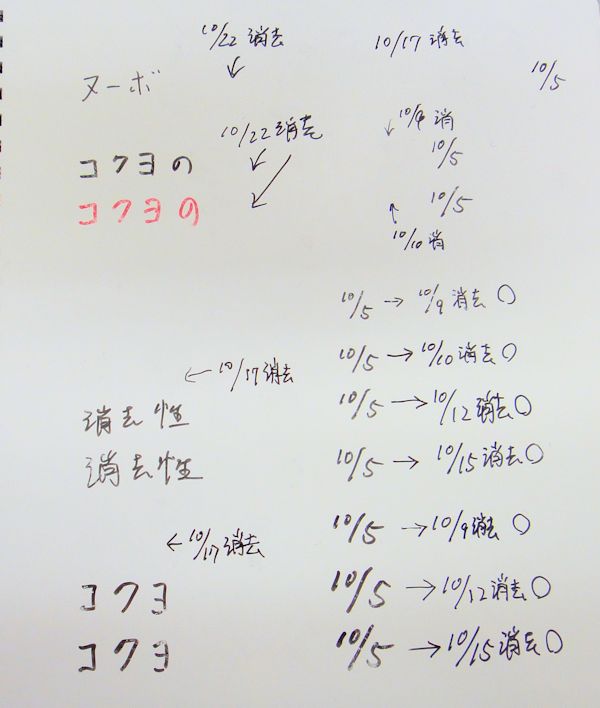 10/22 消去
10/17 消去
10/5
ヌーボ
10/22 消去
10/9 消
10/5
コクヨの
コクヨの
10/5
10/10 消
10/5 → 10/9 消去 ○
10/5 → 10/10 消去 ○
← 10/17 消去
10/5 → 10/12 消去 ○
消去性
消去性
10/5 → 10/15 消去 ○
10/5 → 10/9 消去 ○
← 10/17 消去
コクヨ
10/5 → 10/12 消去 ○
コクヨ
10/5 → 10/15 消去 ○